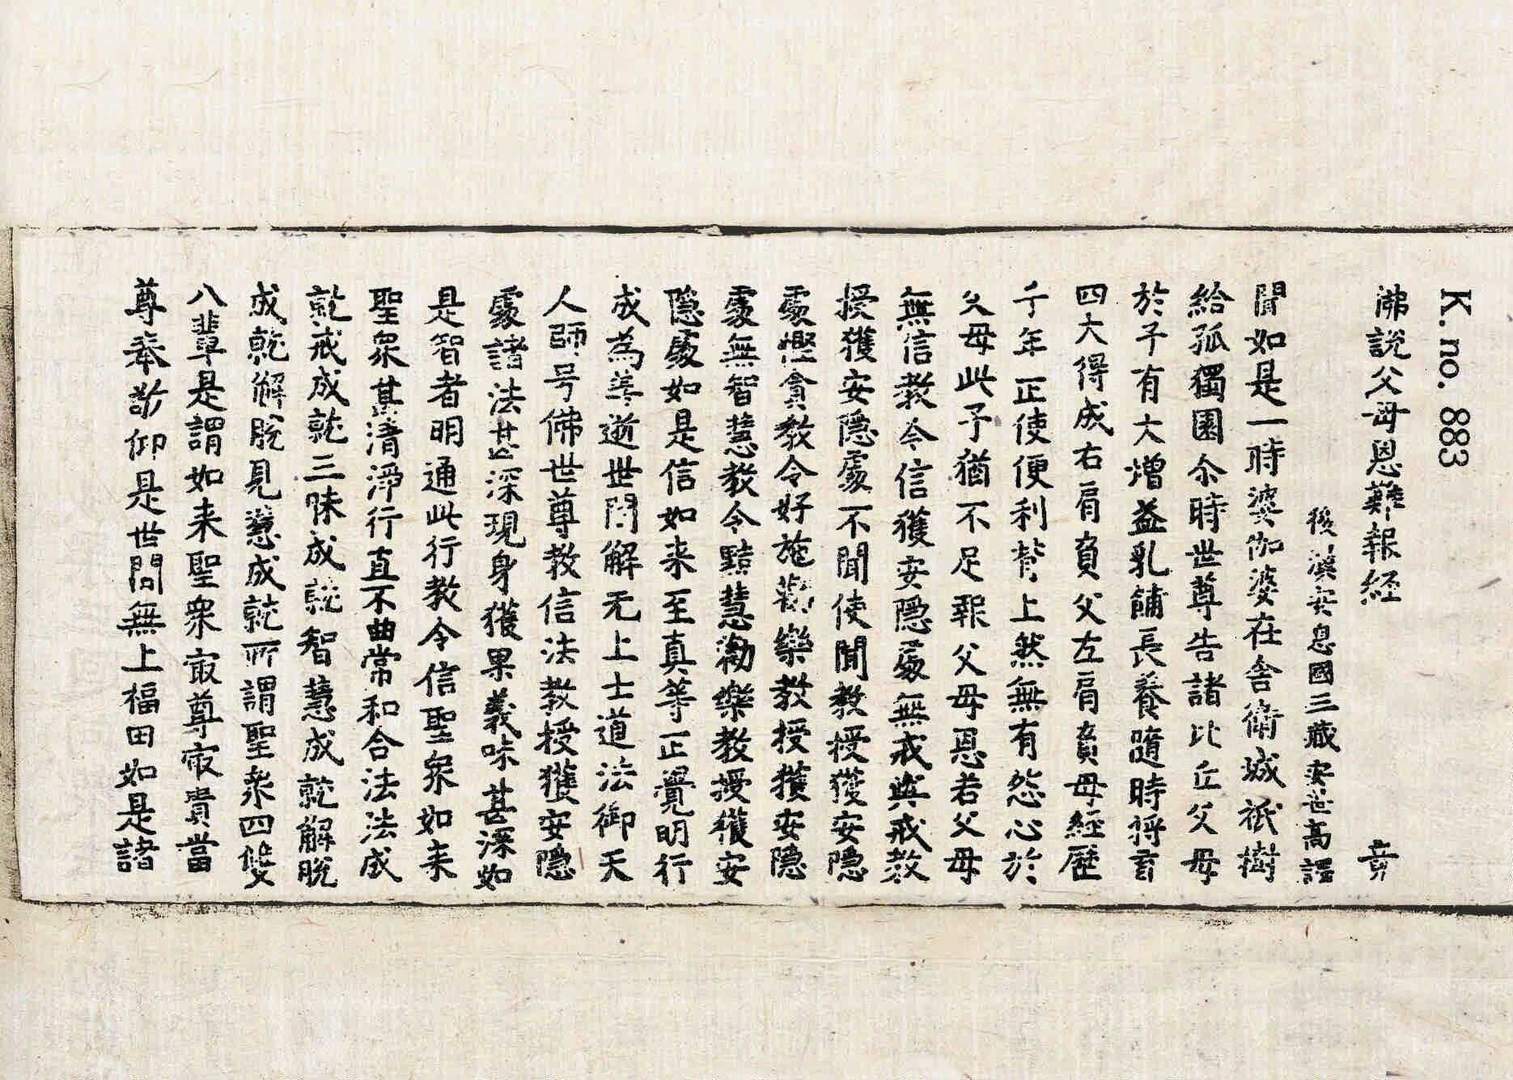 K.no. 883
佛說父母恩難報經 竟
後漢安息國三藏安世高譯
聞如是一時婆伽婆在舍衛城祇樹
給孤獨園尒時世尊告諸比丘父母
於子有大增益乳餔長養隨時將育
四大得成右肩負父左肩負母經歷
千年正使便利背上然無有怨心於
父母此子猶不足報父母恩若父母
無信教令信獲安隱處無戒與戒教
授獲安隱處不聞使聞教授獲安隱
處慳貪教令好施勸樂教授獲安隱
處無智慧教令黠慧勸樂教授獲安
隱處如是信如来至真等正覺明行
成為善逝世間解无上士道法御天
人師号佛世尊教信法教授獲安隱
處諸法甚深現身獲果義味甚深如
是智者明通此行教令信聖衆如来
聖衆甚清淨行直不曲常和合法法成
就戒成就三昧成就智慧成就解脫
成就解脫見慧成就所謂聖衆四雙
八輩是謂如来聖衆㝡尊㝡貴當
尊奉敬仰是世間無上福田如是諸